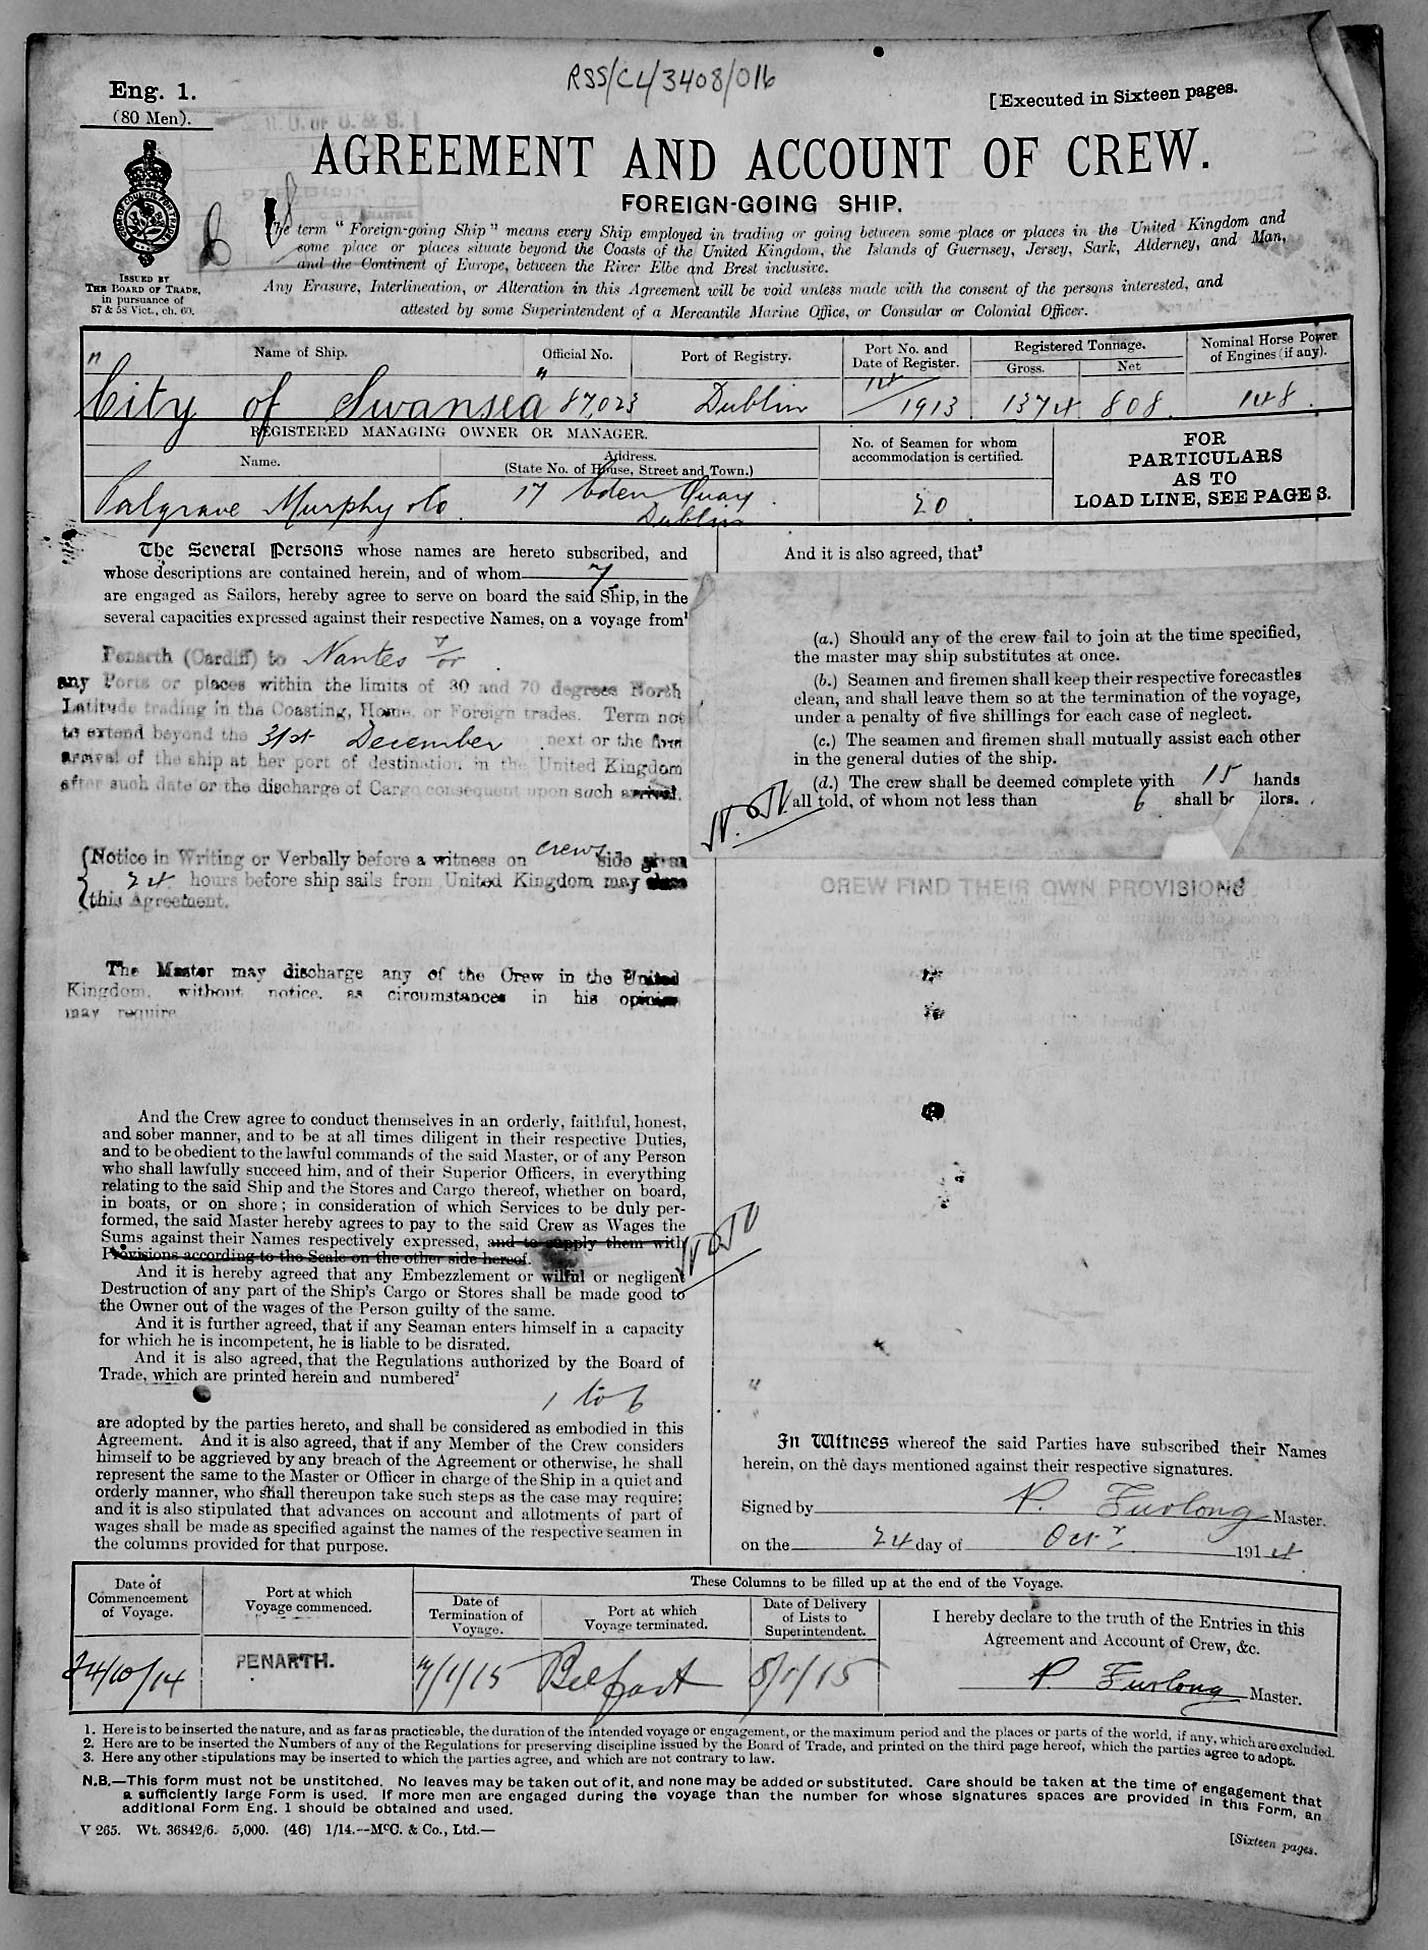 RSS/CL/3408/016
Eng. 1.
(80 Men).
[Executed in Sixteen pages.
AGREEMENT AND ACCOUNT OF CREW.
FOREIGN-GOING SHIP.
The term "Foreign-going Ship" means every Ship employed in trading or going between some place or places in the United Kingdom and
some place or places situate beyond the Coasts of the United Kingdom, the Islands of Guernsey, Jersey, Sark, Alderney, and Man,
and the Continent of Europe, between the River Elbe and Brest inclusive.
Any Erasure, Interlineation, or Alteration in this Agreement will be void unless made with the consent of the persons interested, and
attested by some Superintendent of a Mercantile Marine Office, or Consular or Colonial Officer.
ISSUED BY
THE BOARD OF TRADE,
in pursuance of
57 & 58 Vict., ch. 60.
Name of Ship.
Official No.
Port of Registry.
Port No. and
Date of Register.
Registered Tonnage.
Gross.
Net
Nominal Horse Power
of Engines (if any).
"City of Swansea"
87,023
Dublin
14/1913
1374
808
148
REGISTERED MANAGING OWNER OR MANAGER.
Name.
Address.
(State No. of House, Street and Town.)
No. of Seamen for whom
accommodation is certified.
FOR
PARTICULARS
AS TO
LOAD LINE, SEE PAGE 3.
Palgrave Murphy & Co.
17 Eden Quay
Dublin
20
The Several Persons whose names are hereto subscribed, and
whose descriptions are contained herein, and of whom 7
are engaged as Sailors, hereby agree to serve on board the said Ship, in the
several capacities expressed against their respective Names, on a voyage from¹
Penarth (Cardiff) to Nantes &/or
any Ports or places within the limits of 30 and 70 degrees North
Latitude trading in the Coasting, Home, or Foreign trades. Term not
to extend beyond the 31st December next or the first
arrival of the ship at her port of destination in the United Kingdom
after such date or the discharge of Cargo consequent upon such arrival.
Notice in Writing or Verbally before a witness on crews side given
24 hours before ship sails from United Kingdom may close
this Agreement.
The Master may discharge any of the Crew in the United
Kingdom, without notice, as circumstances in his opinion
may require
And the Crew agree to conduct themselves in an orderly, faithful, honest,
and sober manner, and to be at all times diligent in their respective Duties,
and to be obedient to the lawful commands of the said Master, or of any Person
who shall lawfully succeed him, and of their Superior Officers, in everything
relating to the said Ship and the Stores and Cargo thereof, whether on board,
in boats, or on shore; in consideration of which Services to be duly per-
formed, the said Master hereby agrees to pay to the said Crew as Wages the
Sums against their Names respectively expressed, and to supply them with
Provisions according to the Scale on the other side hereof.
And it is hereby agreed that any Embezzlement or wilful or negligent
Destruction of any part of the Ship's Cargo or Stores shall be made good to
the Owner out of the wages of the Person guilty of the same.
And it is further agreed, that if any Seaman enters himself in a capacity
for which he is incompetent, he is liable to be disrated.
And it is also agreed, that the Regulations authorized by the Board of
Trade, which are printed herein and numbered²
1 to 6
are adopted by the parties hereto, and shall be considered as embodied in this
Agreement. And it is also agreed, that if any Member of the Crew considers
himself to be aggrieved by any breach of the Agreement or otherwise, he shall
represent the same to the Master or Officer in charge of the Ship in a quiet and
orderly manner, who shall thereupon take such steps as the case may require;
and it is also stipulated that advances on account and allotments of part of
wages shall be made as specified against the names of the respective seamen in
the columns provided for that purpose.
And it is also agreed, that³
(a.) Should any of the crew fail to join at the time specified,
the master may ship substitutes at once.
(b.) Seamen and firemen shall keep their respective forecastles
clean, and shall leave them so at the termination of the voyage,
under a penalty of five shillings for each case of neglect.
(c.) The seamen and firemen shall mutually assist each other
in the general duties of the ship.
(d.) The crew shall be deemed complete with 15 hands
all told, of whom not less than 6 shall be ilors.
CREW FIND THEIR OWN PROVISIONS
In Witness whereof the said Parties have subscribed their Names
herein, on the days mentioned against their respective signatures.
Signed by P. Furlong Master.
on the 24 day of Octr 1914
Date of
Commencement
of Voyage.
Port at which
Voyage commenced.
These Columns to be filled up at the end of the Voyage.
Date of
Termination of
Voyage.
Port at which
Voyage terminated.
Date of Delivery
of Lists to
Superintendent.
I hereby declare to the truth of the Entries in this
Agreement and Account of Crew, &c.
24/10/14
PENARTH.
4/1/15
Belfast
5/1/15
P. Furlong Master.
1. Here is to be inserted the nature, and as far as practicable, the duration of the intended voyage or engagement, or the maximum period and the places or parts of the world, if any, which are excluded.
2. Here are to be inserted the Numbers of any of the Regulations for preserving discipline issued by the Board of Trade, and printed on the third page hereof, which the parties agree to adopt.
3. Here any other stipulations may be inserted to which the parties agree, and which are not contrary to law.
N.B.—This form must not be unstitched. No leaves may be taken out of it, and none may be added or substituted. Care should be taken at the time of engagement that
a sufficiently large Form is used. If more men are engaged during the voyage than the number for whose signatures spaces are provided in this Form, an
additional Form Eng. 1 should be obtained and used.
V 265. Wt. 36842/6. 5,000. (46) 1/14.—McC. & Co., Ltd.—
[Sixteen pages.